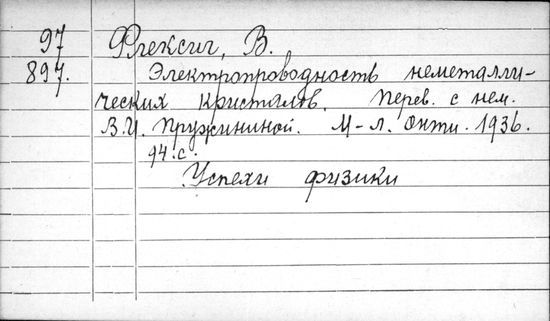 97 Флексиг, В.
897. Электропроводность неметалли-
ческих кристаллов. Перев. с нем.
В.И. Пружининой. М-л. Онти. 1936.
94 с.
Успехи физики